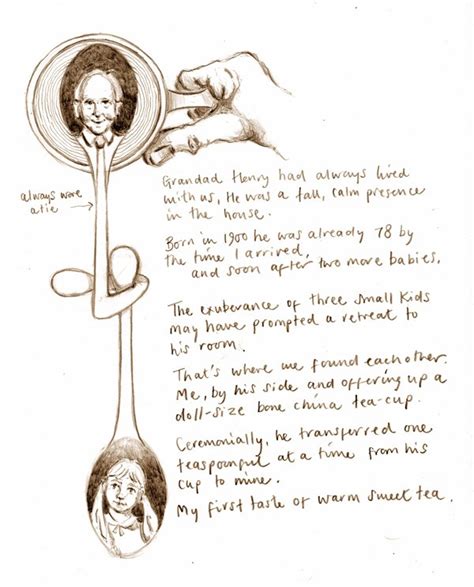 always wore
a tie
Grandad Henry had always lived
with us, He was a tall, calm presence
in the house.
Born in 1900 he was already 78 by
the time I arrived,
and soon after two more babies.
The exuberance of three small kids
may have prompted a retreat to
his room.
That's where we found each other.
Me, by his side and offering up a
doll-size bone china tea-cup.
Ceremonially, he transferred one
teaspoonful at a time from his
cup to mine.
My first taste of warm sweet tea.